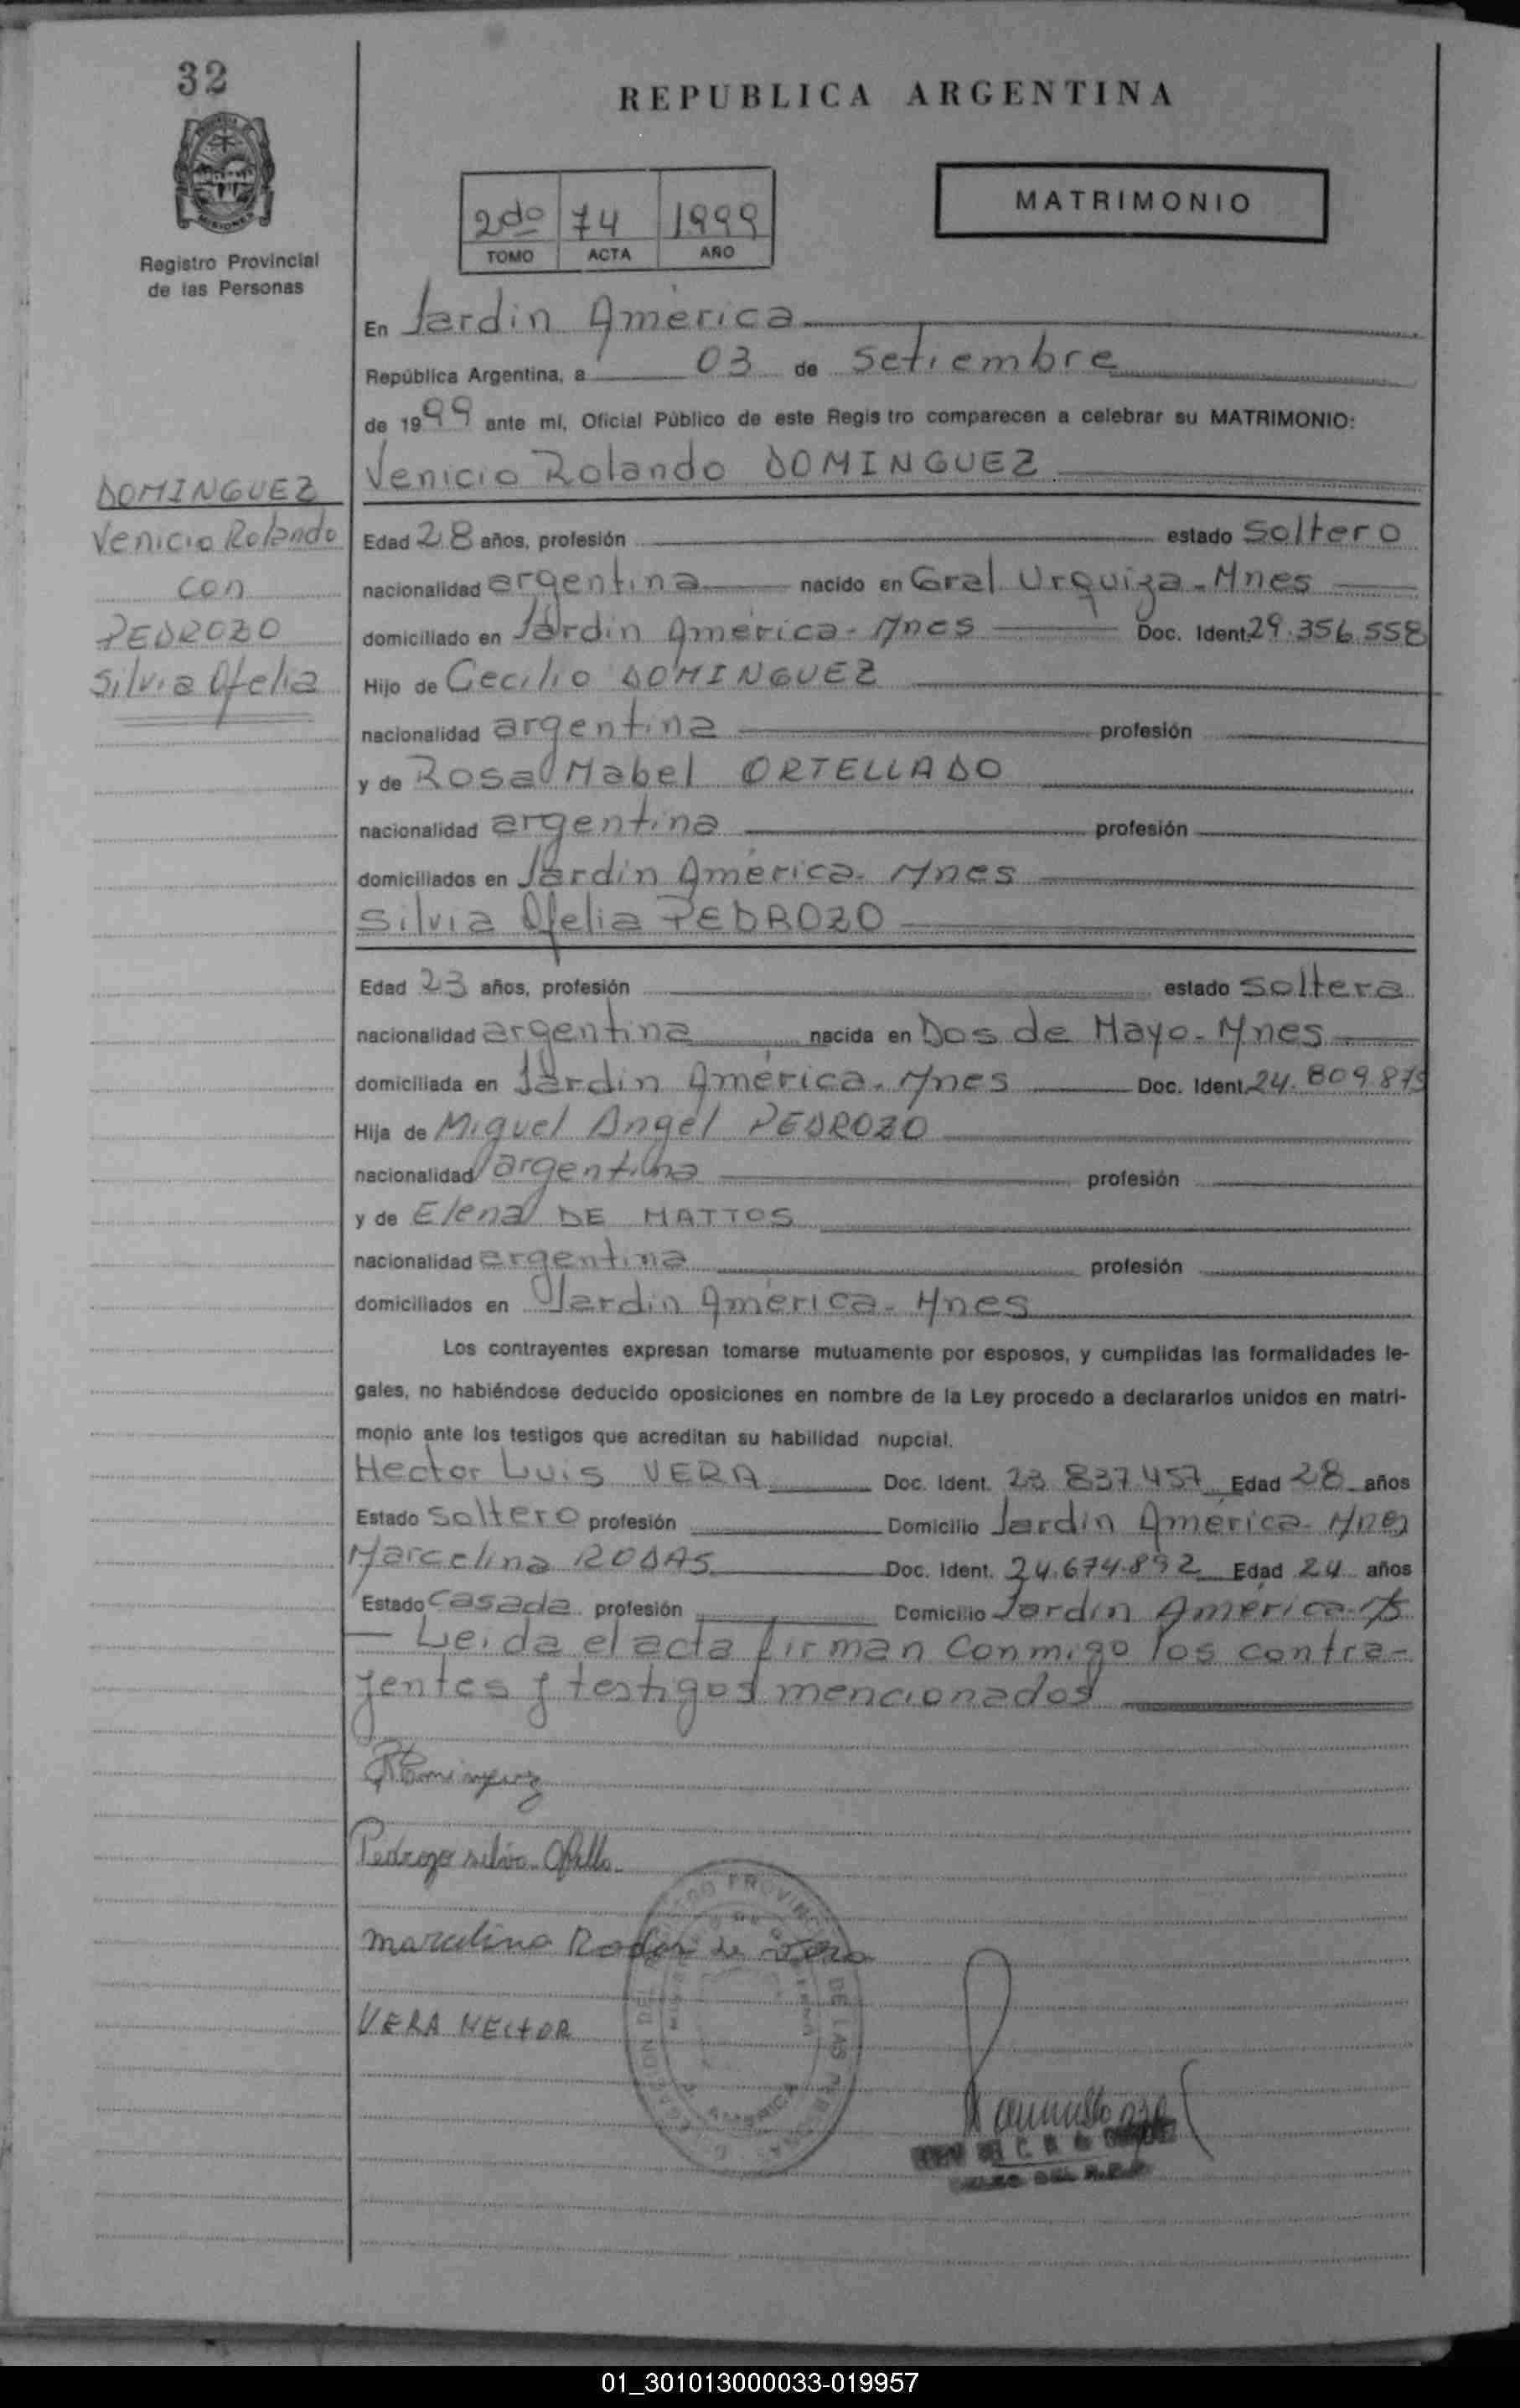 32
REPUBLICA ARGENTINA
MATRIMONIO
2do 74 1999
TOMO ACTA AÑO
Registro Provincial
de las Personas
En Jardin América
República Argentina, a 03 de Setiembre
de 1999 ante mi, Oficial Público de este Regis tro comparecen a celebrar su MATRIMONIO:
Venicio Rolando DOMINGUEZ
DOMINGUEZ
Venicio Rolando
con
PEDROZO
Silvia Ofelia
Edad 28 años, profesión estado Soltero
nacionalidad argentina nacido en Gral Urquiza - Mnes
domiciliado en Jardin América - Mnes Doc. Ident. 29.356.558
Hijo de Cecilio DOMINGUEZ
nacionalidad argentina profesión
y de Rosa Mabel ORTELLADO
nacionalidad argentina profesión
domiciliados en Jardin América - Mnes
Silvia Ofelia PEDROZO
Edad 23 años, profesión estado Soltera
nacionalidad argentina nacida en Dos de Mayo - Mnes
domiciliada en Jardin América - Mnes Doc. Ident. 24.809.875
Hija de Miguel Angel PEDROZO
nacionalidad argentina profesión
y de Elena DE MATTOS
nacionalidad argentina profesión
domiciliados en Jardin América - Mnes
Los contrayentes expresan tomarse mutuamente por esposos, y cumplidas las formalidades le-
gales, no habiéndose deducido oposiciones en nombre de la Ley procedo a declararlos unidos en matri-
monio ante los testigos que acreditan su habilidad nupcial.
Hector Luis VERA Doc. Ident. 23.837.457 Edad 28 años
Estado Soltero profesión Domicilio Jardin América - Mnes
Marcelina RODAS Doc. Ident. 24.674.892 Edad 24 años
Estado Casada profesión Domicilio Jardin América
— Leida el acta firman conmigo los contra-
yentes y testigos mencionados
Pedrozo silvia Ofelia
marcelina Rodas de Vera
VERA HECTOR
01_301013000033-019957